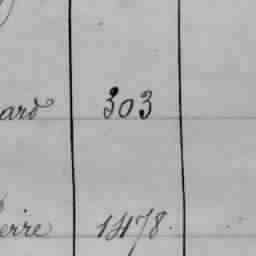 ard 303
erre 1478.